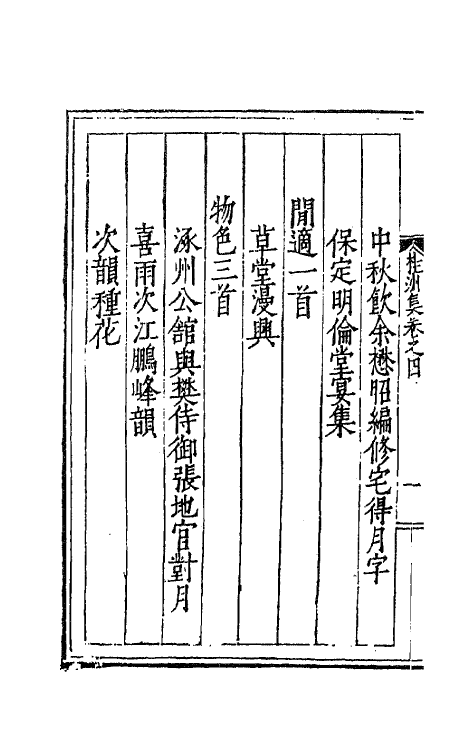 桂洲集卷之四
一
中秋飲余懋昭編修宅得月字
保定明倫堂宴集
閒適一首
草堂漫興
物色三首
涿州公舘與樊侍御張地官對月
喜雨次江鵬峰韻
次韻種花